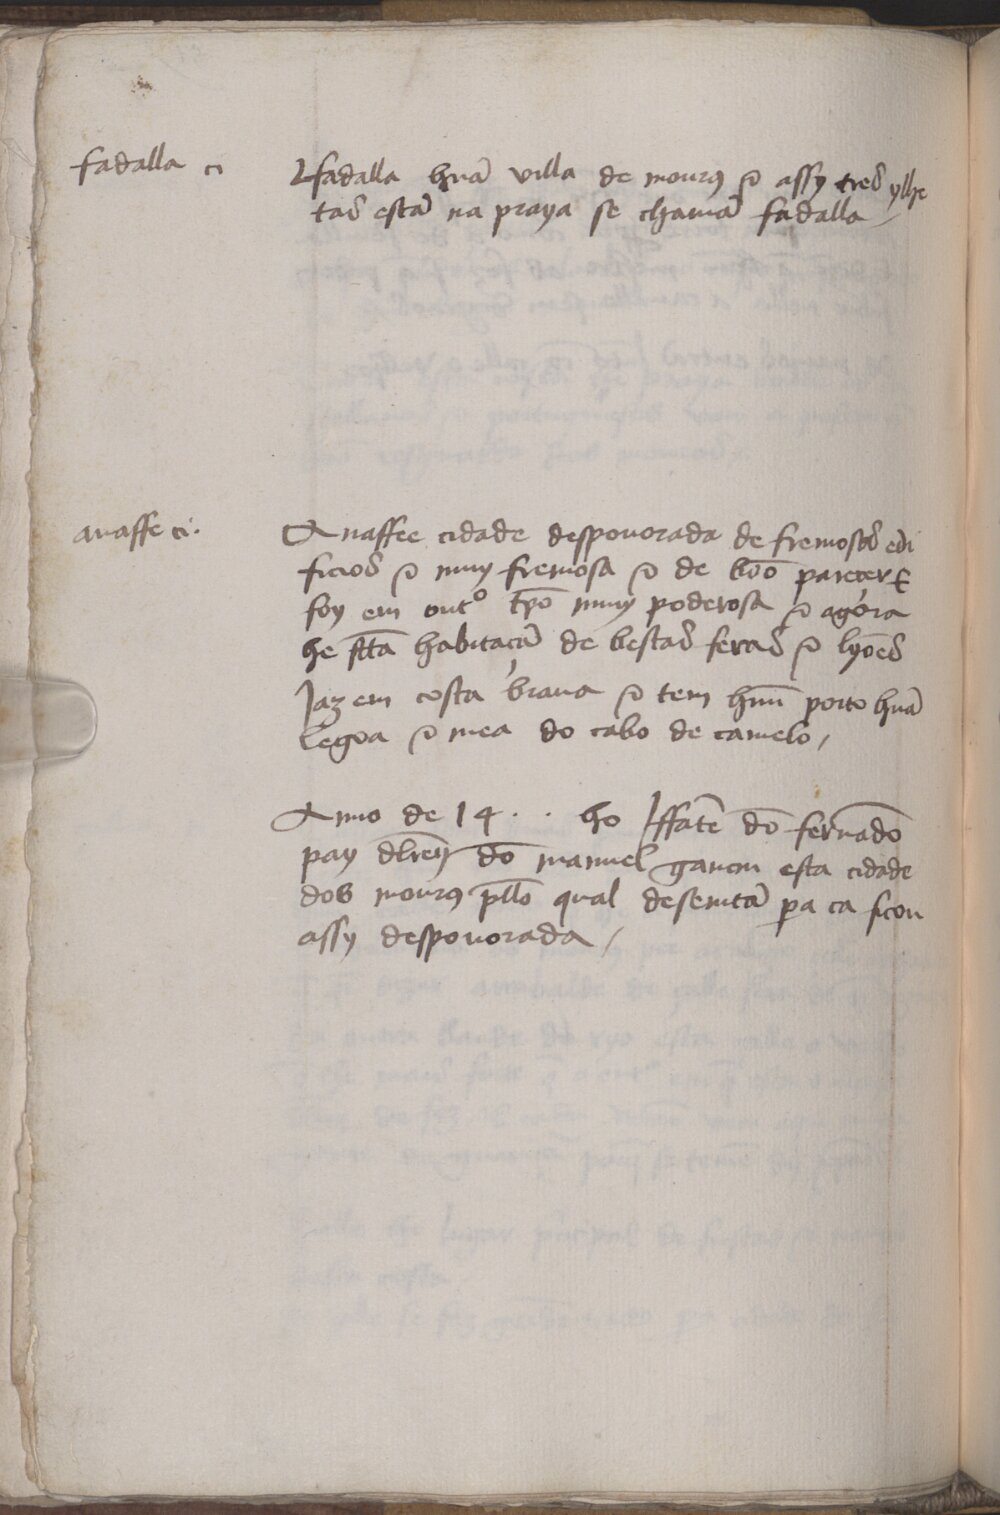 fadalla ci
Ifadalla huã villa de mouros & assy tres ylhe
tas estã na praya se chamã fadalla /
anaffe ci.
Anaffee cidade despouorada de fremosos edi
ficios & muy fremosa & de bõo pareçer &
foy em outº tpõ muy poderosa & agora
he fcta habitaçã de bestas feras & lyoẽs
Jaz em costa braua & tem hũu porto huã
legoa & mea do cabo de camelo /
Anno de 14 . . ho Iffãte dõ fernãdo
pay dlrey dõ manuel ganou esta cidade
dos mouros pllo qual desemtã pa ca ficou
assy despouorada /